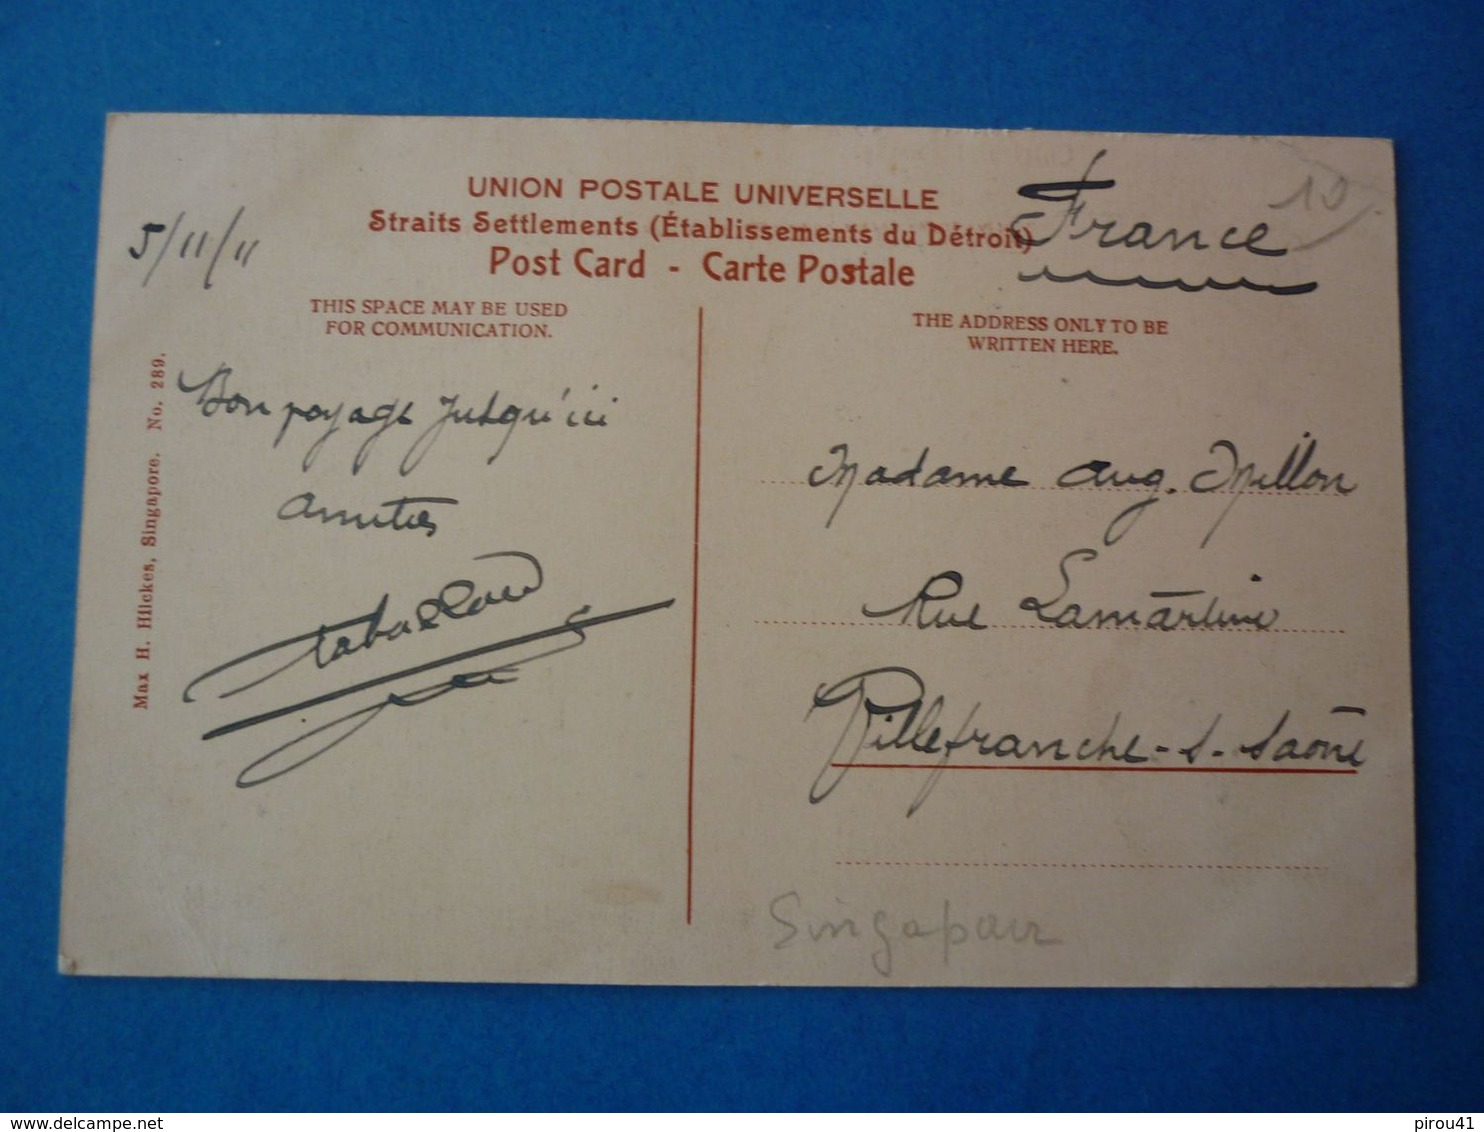 UNION POSTALE UNIVERSELLE
Straits Settlements (Établissements du Détroit)
Post Card - Carte Postale
France
10
5/11/11
THIS SPACE MAY BE USED
FOR COMMUNICATION.
THE ADDRESS ONLY TO BE
WRITTEN HERE.
Max H. Hilckes, Singapore. No. 289.
Bon voyage jusqu'ici
amitiés
Madame Aug. Millon
Rue Lamartine
Villefranche-s-Saône
Singapour
pirou41